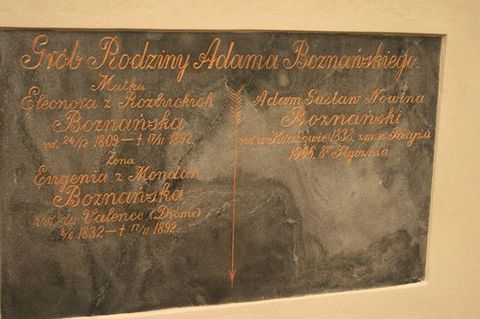 Grób Rodziny Adama Boznańskiego.
Matka
Eleonora z Rozbickich
Boznańska
ur. 24/12 1809 — † 17/11 1892.
Żona
Eugenia z Mondan
Boznańska
ur. w Valence (Drôme)
3/6 1832 — † 17/11 1892.
Adam Gustaw Nowina
Boznański
ur. w Krakowie 1836, zm. w Paryżu
1906, 8° Stycznia